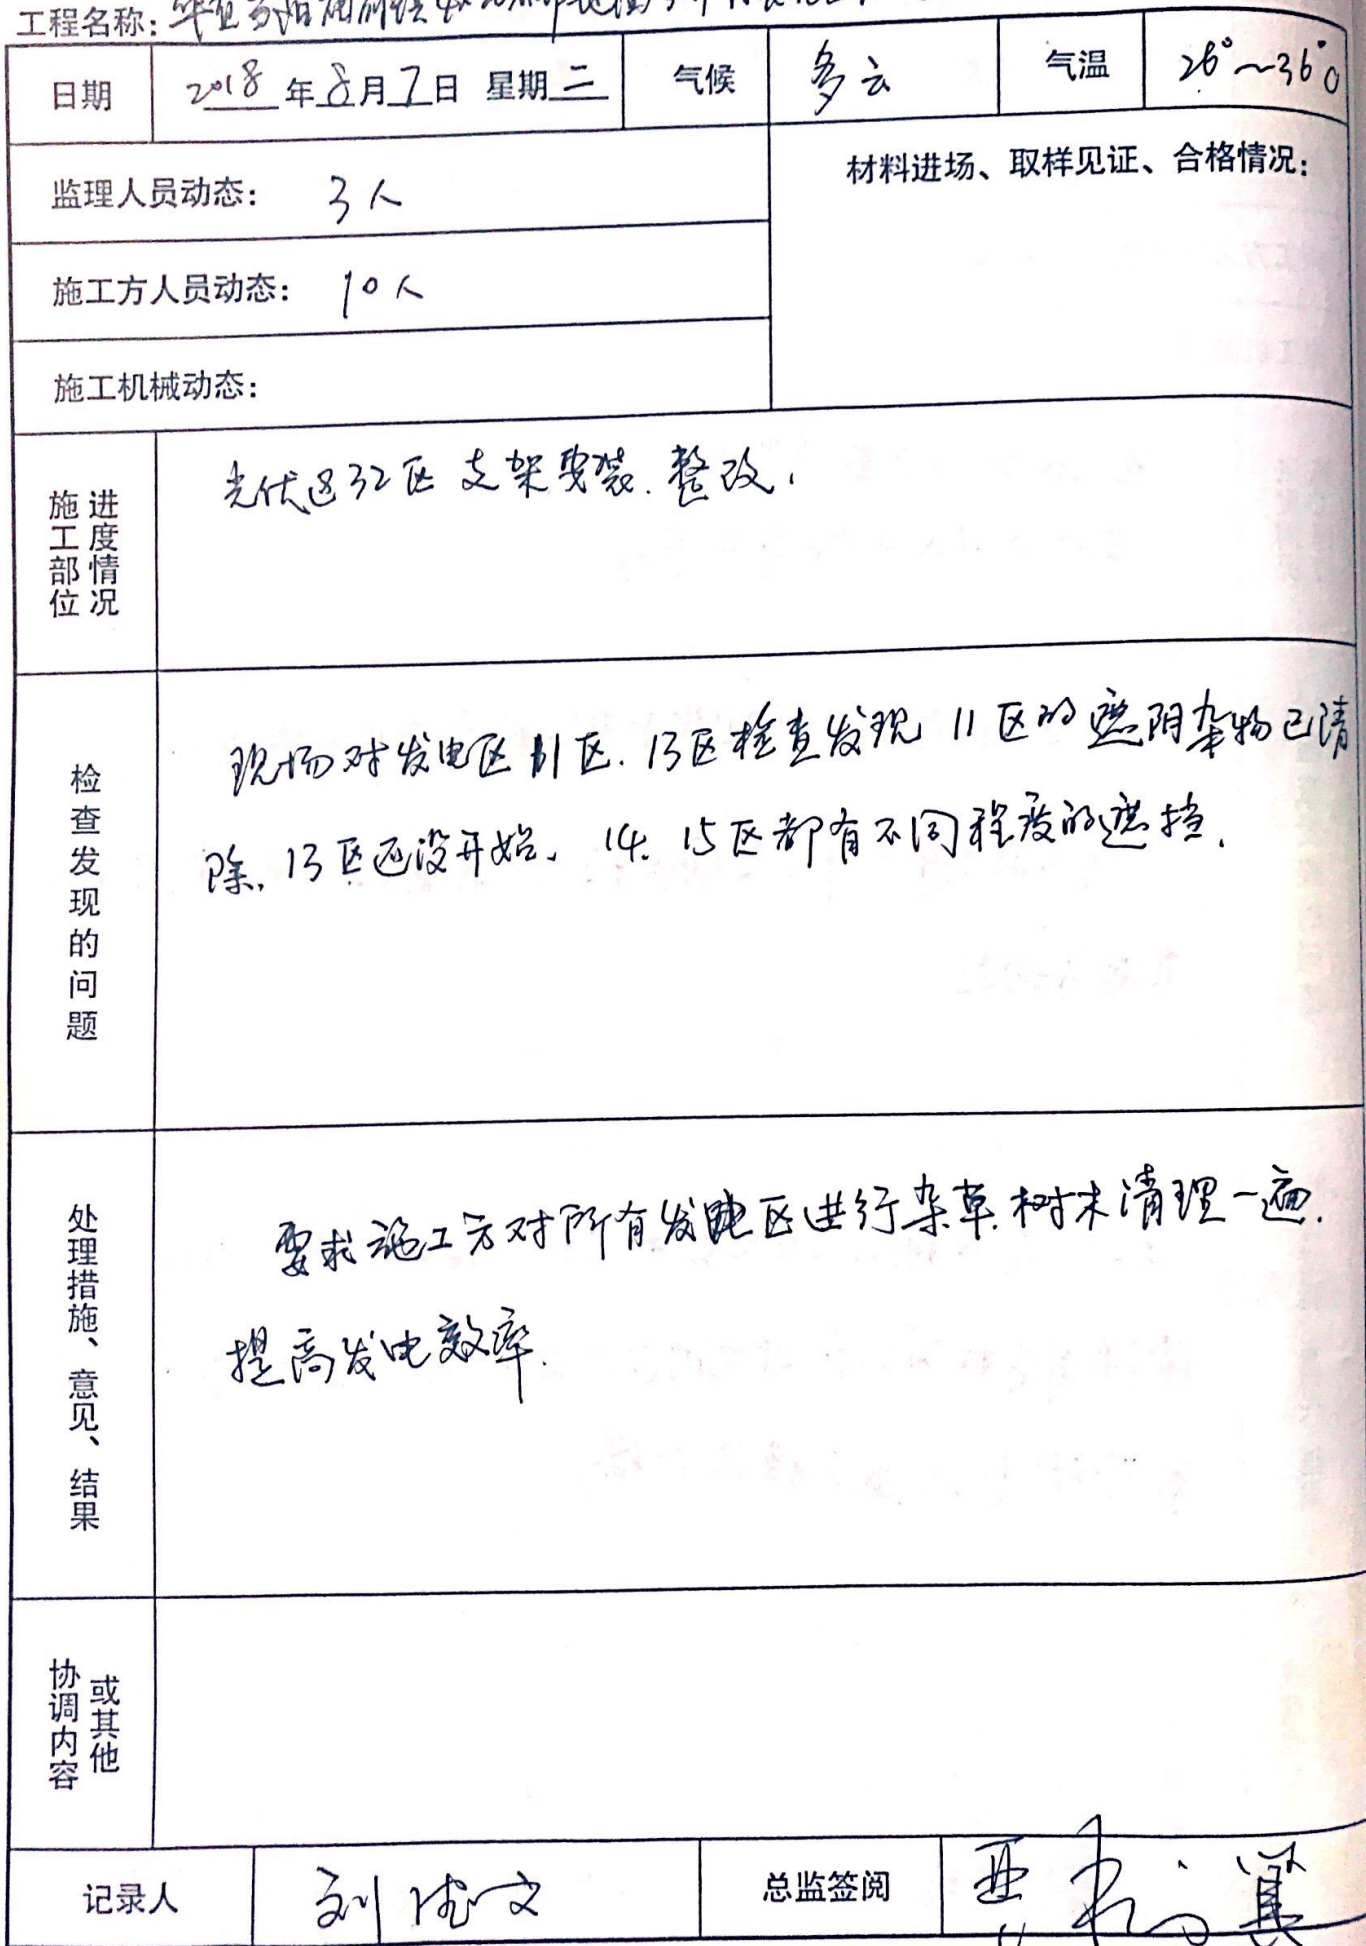 工程名称:
日期 2018年8月7日 星期二 气候 多云 气温 26°~36°
监理人员动态: 3人
材料进场、取样见证、合格情况:
施工方人员动态: 10人
施工机械动态:
施工部位 进度情况
光伏区32区支架安装.整改.
检查发现的问题
现场对发电区11区.13区检查发现11区的遮阴杂物已清
除.13区还没开始.14.15区都有不同程度的遮挡.
处理措施、意见、结果
要求施工方对所有发电区进行杂草.树木清理一遍.
提高发电效率.
协调内容 或其他
记录人 刘 文 总监签阅